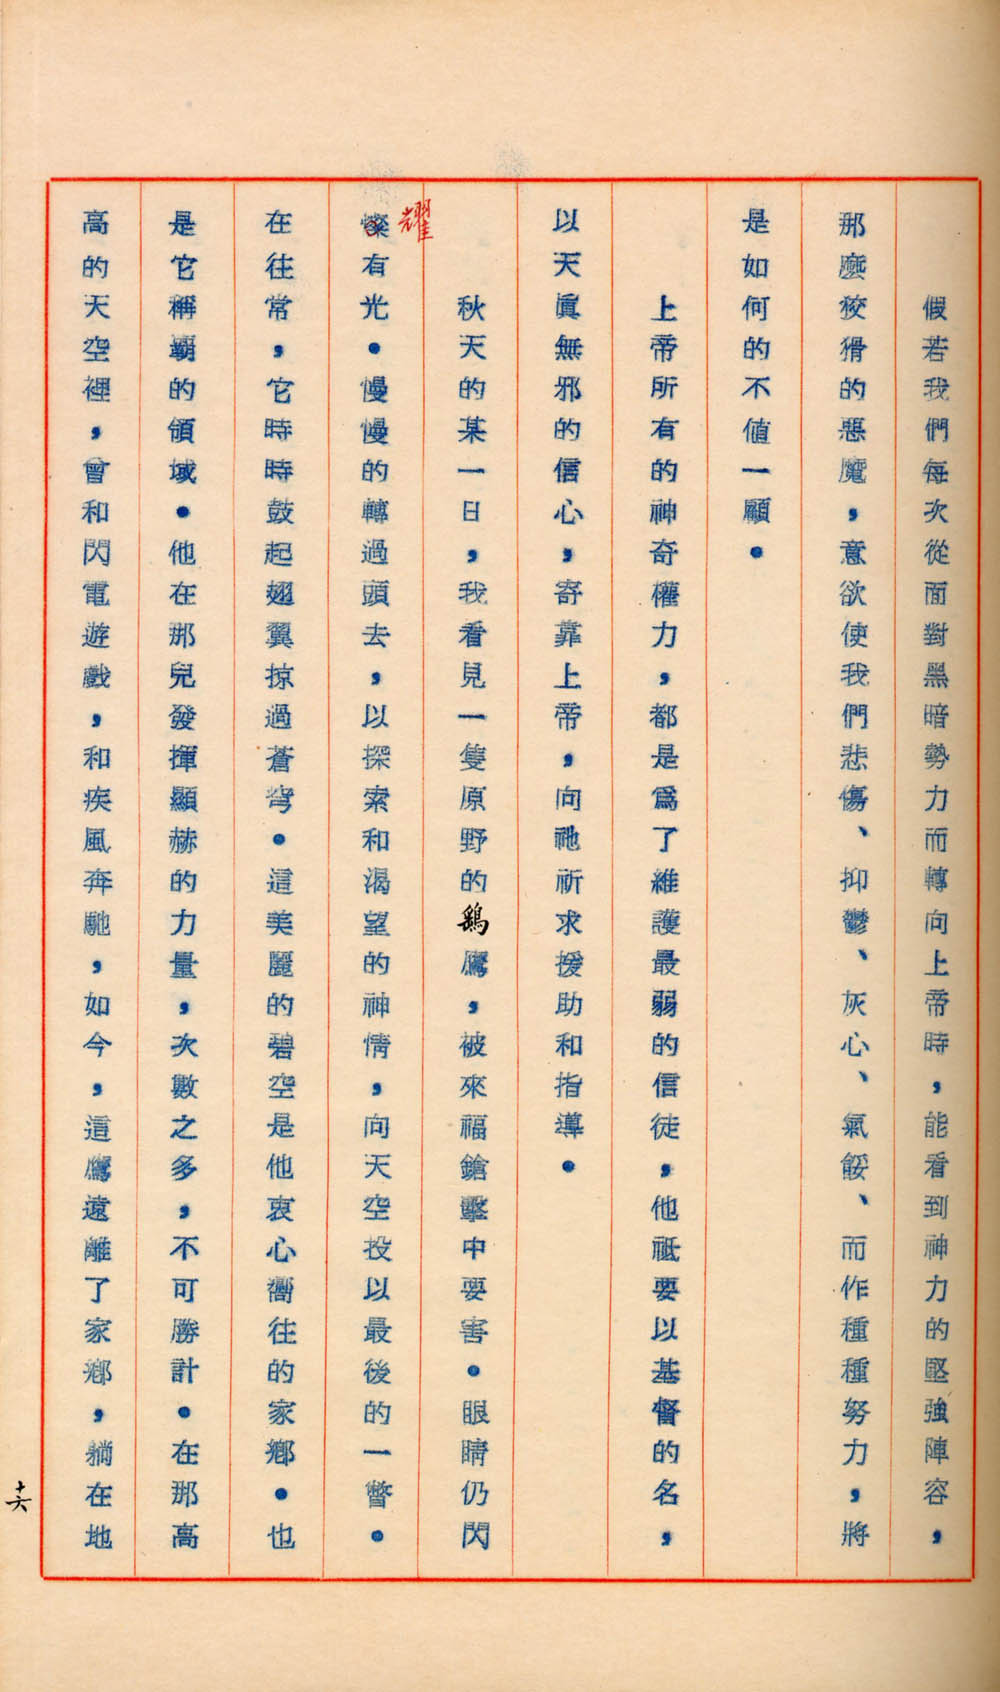 假若我們每次從面對黑暗勢力而轉向上帝時，能看到神力的堅強陣容，
那麼狡猾的惡魔，意欲使我們悲傷、抑鬱、灰心、氣餒、而作種種努力，將
是如何的不値一顧。
上帝所有的神奇權力，都是爲了維護最弱的信徒，他祗要以基督的名，
以天眞無邪的信心，寄靠上帝，向祂祈求援助和指導。
秋天的某一日，我看見一隻原野的鷂鷹，被來福鎗擊中要害。眼睛仍閃
耀
燦有光。慢慢的轉過頭去，以探索和渴望的神情，向天空投以最後的一瞥。
在往常，它時時鼓起翅翼掠過蒼穹。這美麗的碧空是他衷心嚮往的家鄉。也
是它稱霸的領域。他在那兒發揮顯赫的力量，次數之多，不可勝計。在那高
高的天空裡，曾和閃電遊戲，和疾風奔馳，如今，這鷹遠離了家鄉，躺在地
十六